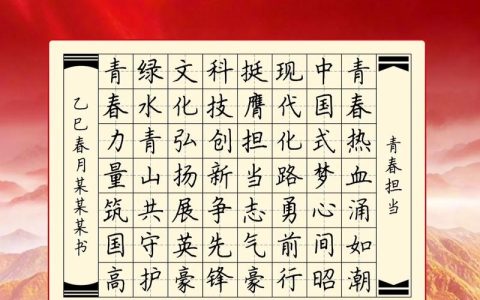 青春担当
青春热血涌如潮
中国式梦心间昭
现代化路勇前行
挺膺担当志气豪
科技创新争先锋
文化弘扬展英豪
绿水青山共守护
青春力量筑国高
乙巳春月某某某书